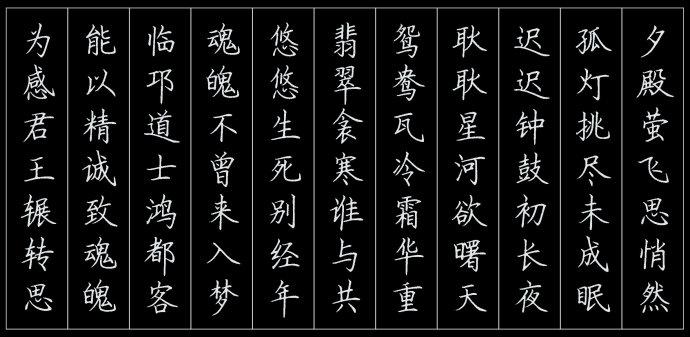 夕殿萤飞思悄然
孤灯挑尽未成眠
迟迟钟鼓初长夜
耿耿星河欲曙天
鸳鸯瓦冷霜华重
翡翠衾寒谁与共
悠悠生死别经年
魂魄不曾来入梦
临邛道士鸿都客
能以精诚致魂魄
为感君王辗转思